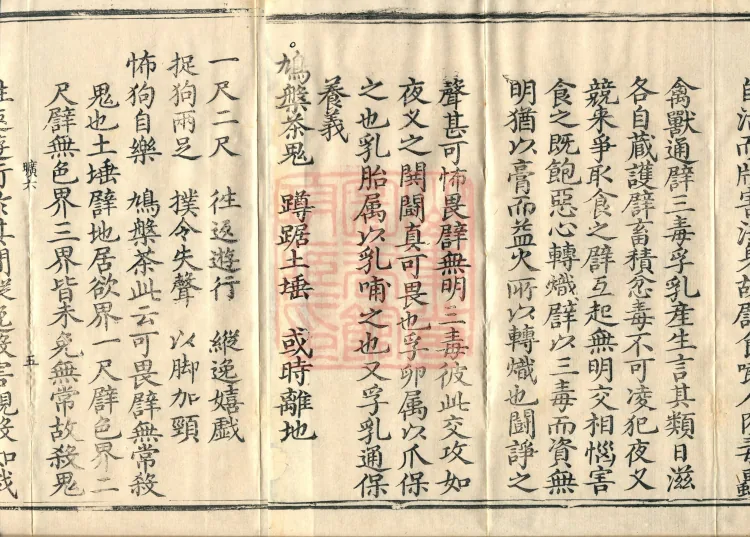 禽獸通譬三毒孚乳產生言其類日滋
各自蔵護譬畜積忿毒不可凌犯夜叉
競来爭取食之譬互起無明交相惱害
食之既飽惡心轉熾譬以三毒而資無
明猶以膏而益火所以轉熾也鬪諍之
聲甚可怖畏譬無明三毒彼此交攻如
夜叉之鬨鬪真可畏也孚卵属以爪保
之也乳胎属以乳哺之也又孚乳通保
養義
鳩槃茶鬼 蹲踞土埵 或時離地
一尺二尺 徃返遊行 縱逸嬉戯
捉狗兩足 撲令失聲 以脚加頸
怖狗自樂 鳩槃茶此云可畏譬無常殺
鬼也土埵譬地居欲界一尺譬色界二
尺譬無色界三界皆未免無常故殺鬼
曠六 五